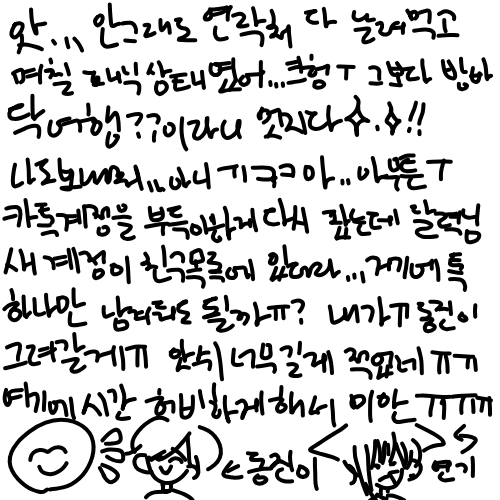 앗... 안그래도 연락처 다 날려먹고
며칠 패닉상태였어...크헝ㅜ 그보다 방바
닥여행??이라니 멋지다✧.✧!!
나도보내줘... 아니 ㄱㅋㅋ 아.. 아뿔ㅜ
카톡계정을 부득이하게 다시 팠는데 달력님
새 계정이 친구목록에 있더라...거기에 톡
하나만 남겨줘도 될까ㅠ? 내가ㅠ 동전이
그려갈게ㅠ 앗 쓰다 너무길게 적었네ㅠㅠ
여기에 시간 허비하게해서 미안ㅠㅠㅠ
←동전이
연기